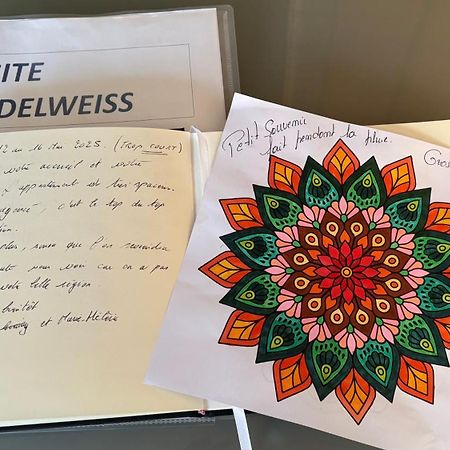 ITE
DELWEISS
12 au 16 Mai 2025. (Trop court)
votre accueil et votre
appartement est très spacieux.
c'est le top du top
plus, sûres que l'on reviendra
car on a pas
votre belle région.
bientôt
et Marie-Hélène
Petit Souvenir
fait pendant la pluie.
Gros